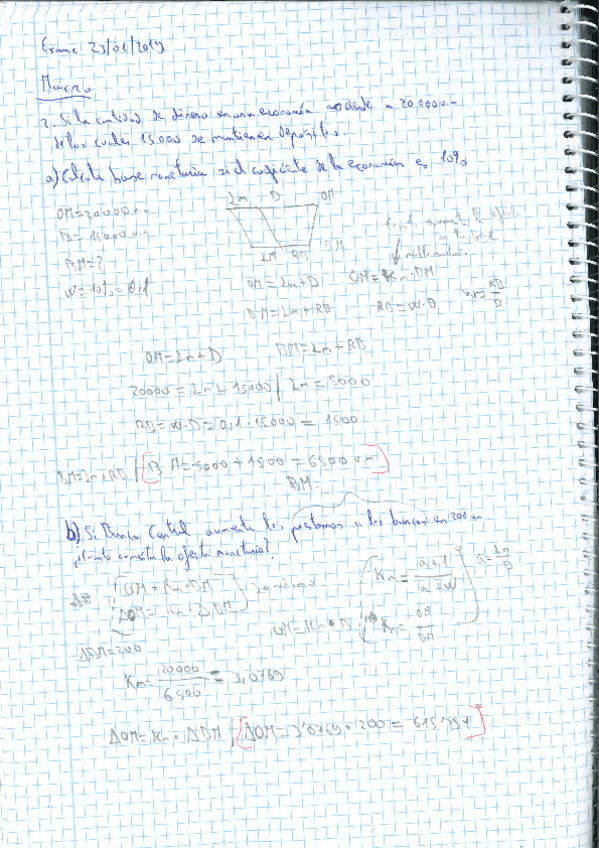 Examen 23/01/2019
Macro
2. Si la cantidad de dinero en una economía asciende a 20.000 u.m.
de los cuales 15000 se mantienen depósitos.
a) Calcula base monetaria si el coeficiente de la economía es 10%
Lm D OM
OM=20000 u.m
D=15000 u.m
BM=?
w=10%=0,1
LM RB BM
OM=Lm+D OM=Km·BM
BM=Lm+RB RB=w·D w=RB/D
OM=Lm+D BM=Lm+RB
20000=Lm+15000/ Lm=5000
RB=w·D=0,1·15000=1500
BM=Lm+RB / BM=5000+1500=6500 um
BM.
b) Si Banco Central aumenta los préstamos a los bancos en 200 um
¿Cuánto aumenta la oferta monetaria?
OM=Km·BM
ΔOM=Km·ΔBM
Km=a+1/a+w a=Lm/D
Km=OM/BM
ΔBM=200
Km=20000/6500=3,0769
ΔOM=Km·ΔBM / ΔOM=3,0769·200=